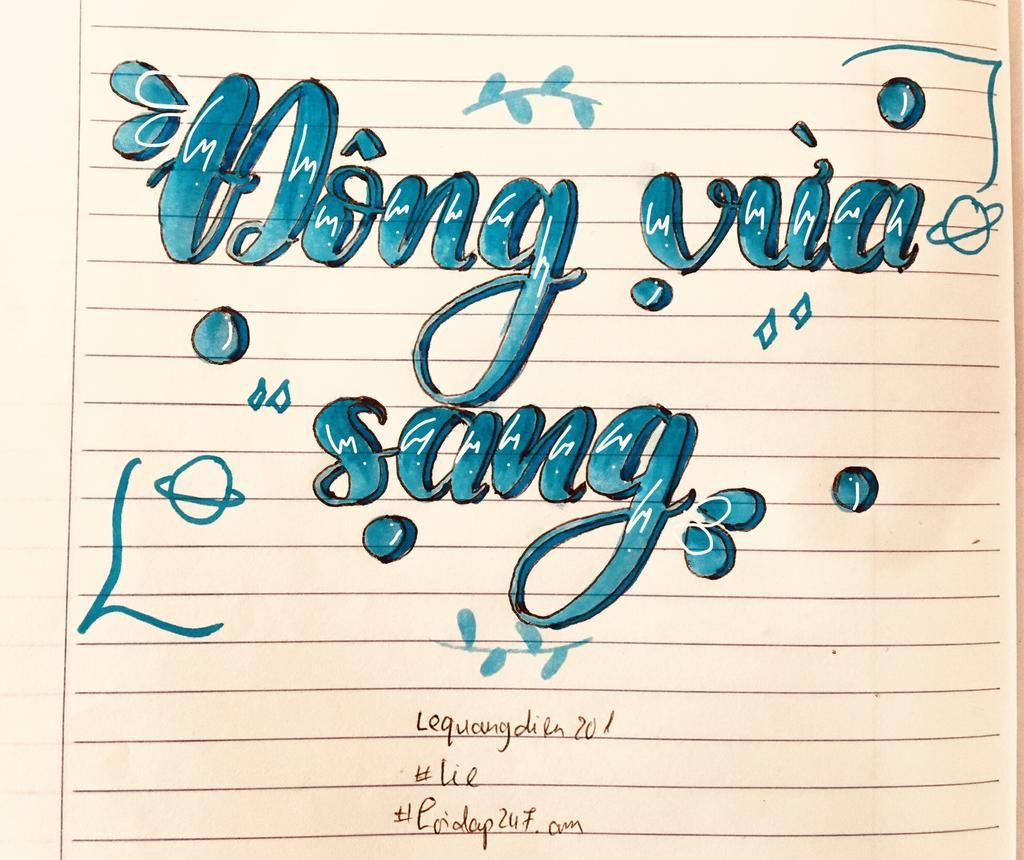 Đông vừa
sang
Lequangdien201
#lie
#loidap247.com